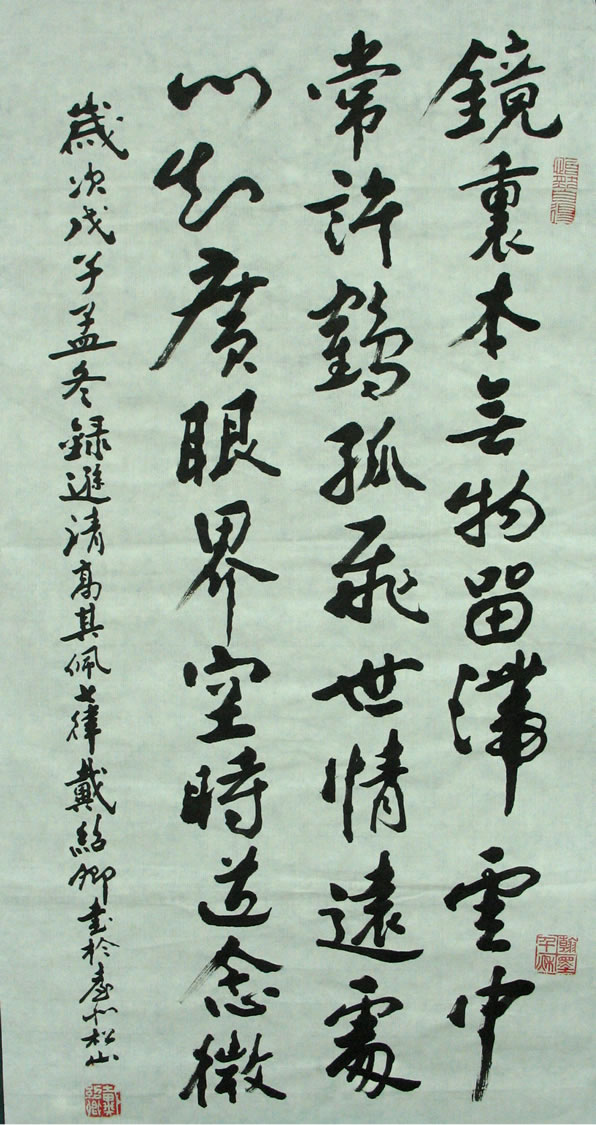 鏡裏本無物留滯雲中
常許鶴孤飛世情遠處
心知廣眼界空時道念微
歲次戊子孟冬錄遜清高其佩七律戴紹卿書於臺北松山
翰墨千秋